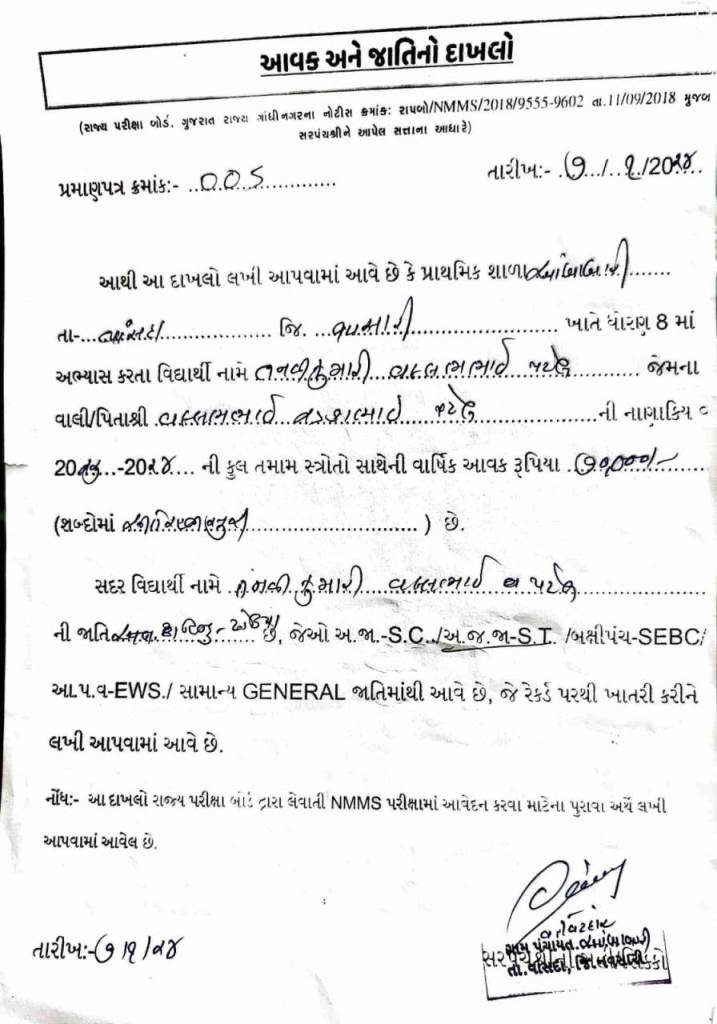 આવક અને જાતિનો દાખલો
(રાજ્ય પરીક્ષા બોર્ડ. ગુજરાત રાજ્ય ગાંધીનગરના નોટીસ ક્રમાંકઃ રાપબો/NMMS/2018/9555-9602 તા.11/09/2018 મુજબ
સરપંચશ્રીને આપેલ સત્તાના આધારે)
પ્રમાણપત્ર ક્રમાંક:- ..005.............. તારીખઃ- .૭.../..૧./20૨૪....
આથી આ દાખલો લખી આપવામાં આવે છે કે પ્રાથમિક શાળા
તા-...વાંસદા.................. જિ. ...નવસારી........................ ખાતે ધોરણ 8 માં
અભ્યાસ કરતા વિદ્યાર્થી નામે તનવીકુમારી વલ્લભભાઈ પટેલ ............ જેમના
વાલી/પિતાશ્રી વલ્લભભાઈ પટેલ .....................ની નાણાકિય વ
20૨૩...-20૨૪.... ની કુલ તમામ સ્ત્રોતો સાથેની વાર્ષિક આવક રૂપિયા
(શબ્દોમાં ............................ ) છે.
સદર વિદ્યાર્થી નામે તનવીકુમારી વલ્લભભાઈ પટેલ
ની જાતિ છે, જેઓ અ.જા.-S.C../અ.જ.જા-S.T. /બક્ષીપંચ-SEBC/
આ.પ.વ-EWS./ સામાન્ય GENERAL જાતિમાંથી આવે છે, જે રેકર્ડ પરથી ખાતરી કરીને
લખી આપવામાં આવે છે.
નોંધઃ- આ દાખલો રાજ્ય પરીક્ષા બોર્ડ દ્વારા લેવાતી NMMS પરીક્ષામાં આવેદન કરવા માટેના પુરાવા અર્થે લખી
આપવામાં આવેલ છે.
વહીવટદાર
ગ્રામ પંચાયત
તા.વાંસદા, જિ.નવસારી
તારીખઃ-૭/૧/૨૪